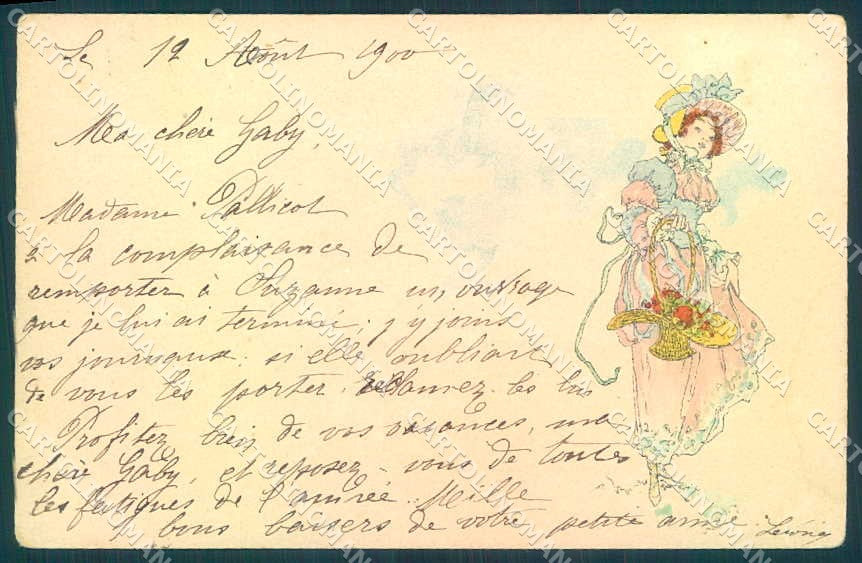 Le 12 Août 1900
Ma chère Gaby,
Madame Pallicot
a la complaisance de
remporter à Suzanne un, ouvrage
que je lui ai terminé; j'y joins
vos journaux. si elle oubliait
de vous les porter. réclamez-les lui
Profitez bien de vos vacances, ma
chère Gaby, et reposez-vous de toutes
les fatigues de l'année. Mille
bons baisers de votre petite amie.
CARTOLINOMANIA